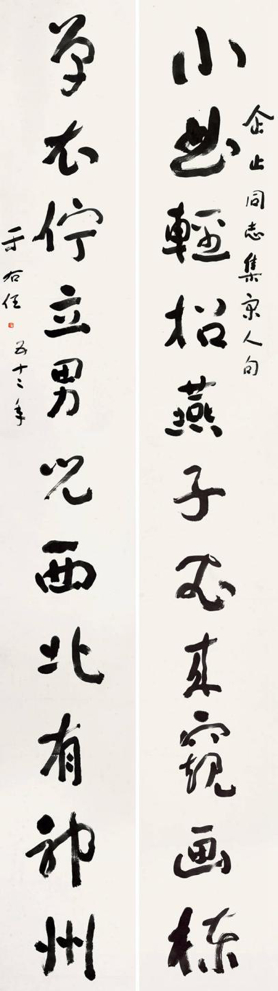 企止同志集宋人句
小曲輕招燕子飛來窺画棟
單衣佇立男兒西北有神州
于右任 五十二年